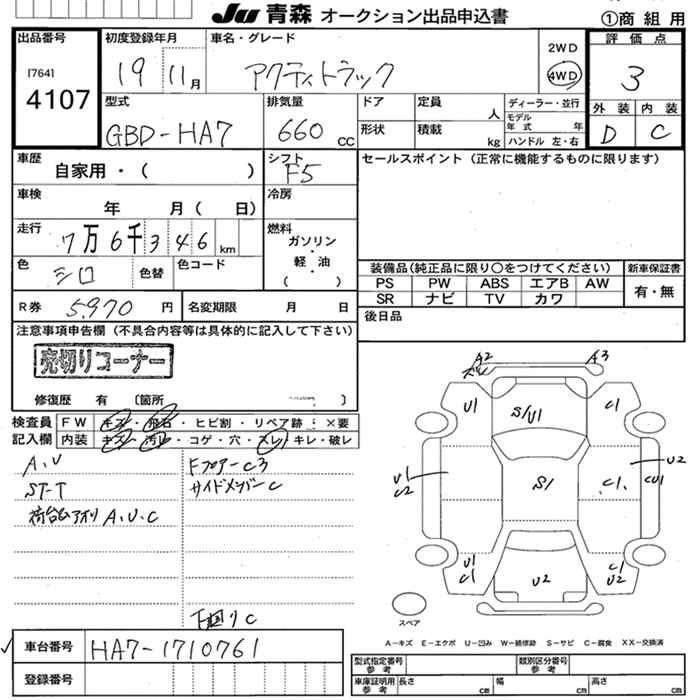 JU 青森 オークション出品申込書
①商 組 用
出品番号
[764]
4107
初度登録年月
19 11月
車名・グレード
アクティトラック
2WD
4WD
評価点
3
外装 内装
D C
型式
GBD-HA7
排気量
660 cc
ドア
形状
定員 人
積載 kg
ディーラー・並行
モデル年式 年
ハンドル 左・右
車歴
自家用・( )
シフト
F5
セールスポイント(正常に機能するものに限ります)
車検
年 月( 日)
冷房
走行
7万6千346 km
燃料
ガソリン
軽・油
( ・ )
色
シロ
色替
色コード
装備品(純正品に限り○をつけてください)
新車保証書
PS PW ABS エアB AW
SR ナビ TV カワ
有・無
R券 5,970 円
名変期限 月 日
後日品
注意事項申告欄(不具合内容等は具体的に記入して下さい)
売切りコーナー
修復歴 有 〔箇所 〕
検査員記入欄
FW キズ・飛石・ヒビ割・リペア跡・×要
内装 キズ・汚レ・コゲ・穴・スレ・キレ・破レ
A,U
ST-T
荷台ムアオリ A,U,C
Fフロアー C3
サイドメンバー C
下廻り C
A2
A3
U1
S/U1
C1
U1
C2
S1
C1
U2
CU1
U1
C1
U2
C1
U2
スペア
A-キズ E-エクボ U-凹み W-補修跡 S-サビ C-腐食 XX-交換済
車台番号
HA7-1710761
登録番号
型式指定番号 参考
類別区分番号 参考
車庫証明用 参考
長さ cm
幅 cm
高さ cm